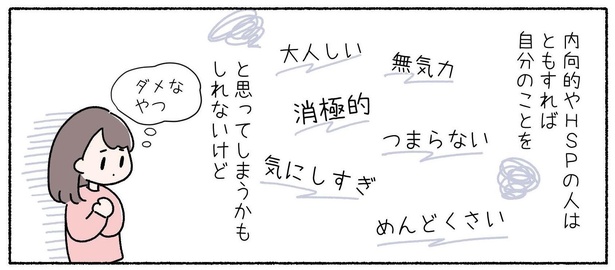 内向的やHSPの人は
ともすれば
自分のことを
大人しい
無気力
消極的
つまらない
気にしすぎ
めんどくさい
と思ってしまうかも
しれないけど
ダメな
やつ